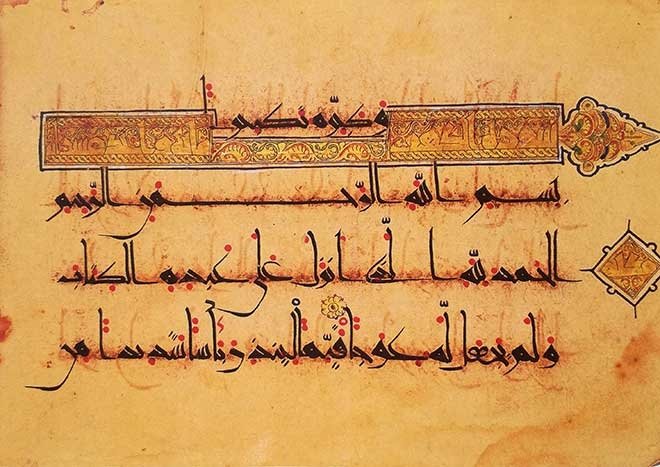 وكبره تكبيرا
بسم الله الرحمن الرحيم
الحمد لله الذي انزل على عبده الكتاب
ولم يجعل له عوجا قيما لينذر باسا شديدا من